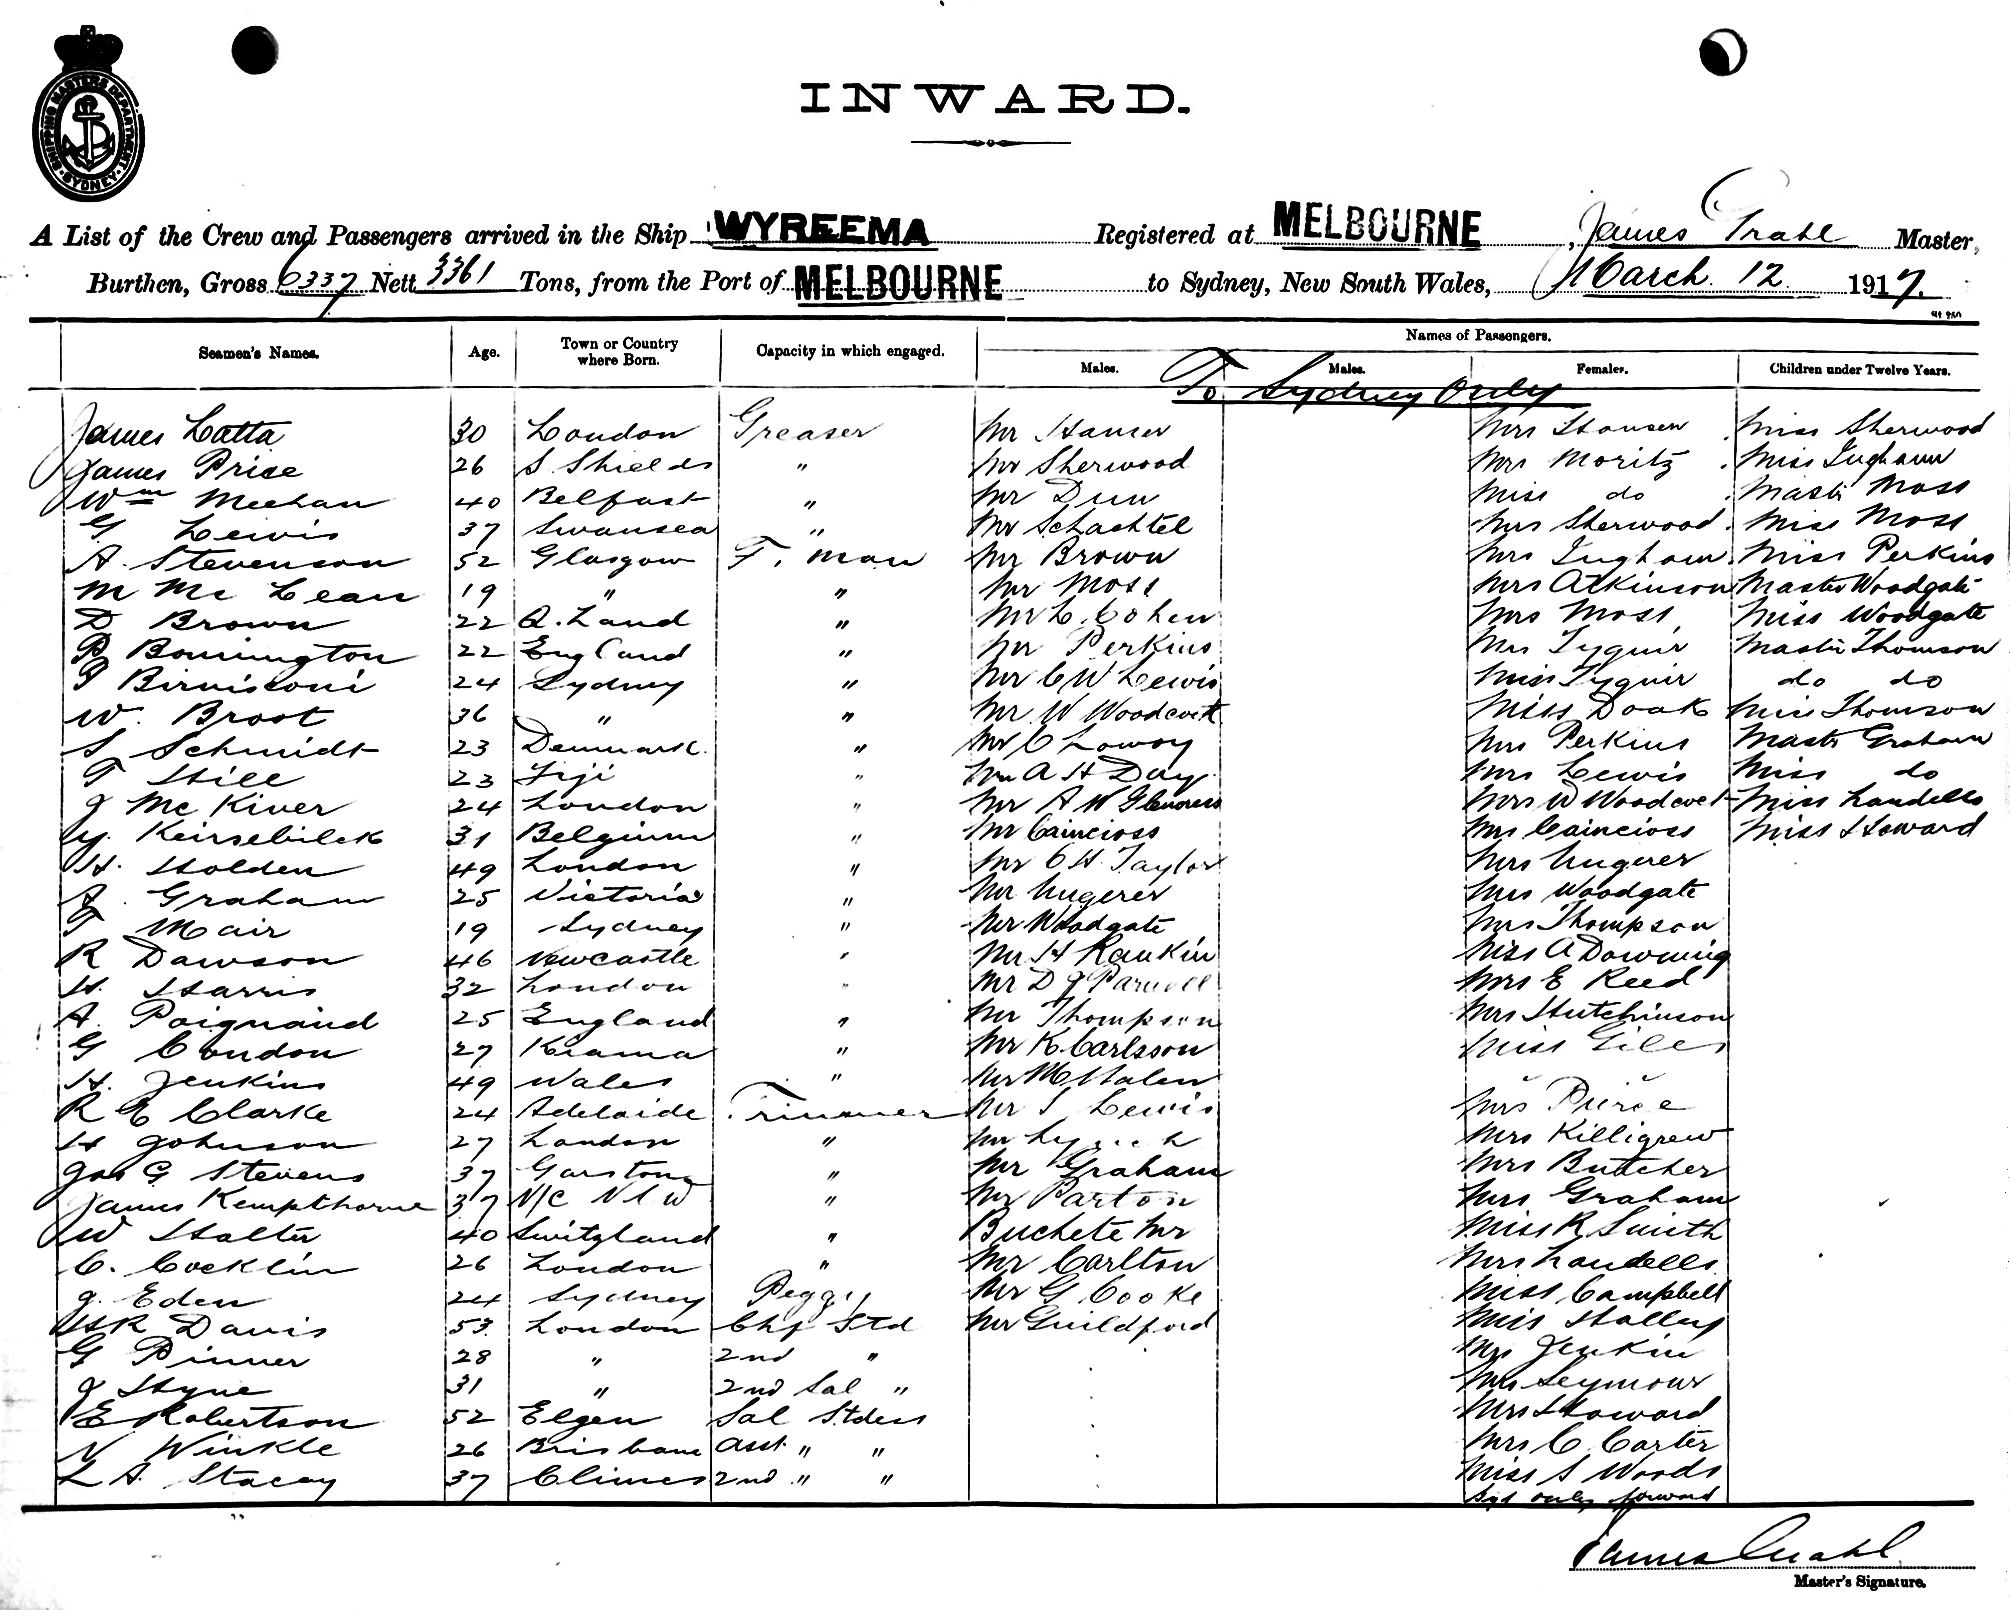 SHIPPING MASTERS DEPARTMENT
SYDNEY
INWARD.
A List of the Crew and Passengers arrived in the Ship WYREEMA Registered at MELBOURNE, James Grahl Master,
Burthen, Gross 6337 Nett 3361 Tons, from the Port of MELBOURNE to Sydney, New South Wales, March 12 1917.
Seamen's Names. Age. Town or Country where Born. Capacity in which engaged. Names of Passengers.
Males. Males. Females. Children under Twelve Years.
To Sydney Only
James Latta 30 London Greaser Mr Hansen Mrs Hansen Miss Sherwood
James Price 26 S. Shields " Mr Sherwood Mrs Moritz Miss Ingham
Wm Meehan 40 Belfast " Mr Dun Miss do Mastr Moss
G Lewis 37 Swansea " Mr Schachtel Mrs Sherwood Miss Moss
A. Stevenson 52 Glasgow F. man Mr Brown Mrs Ingham Miss Perkins
M Mc Lean 19 " " Mr Moss Mrs Atkinson Master Woodgate
D Brown 22 Q. Land " Mr L. Cohen Mrs Moss Miss Woodgate
P Bonnington 22 England " Mr Perkins Mrs Tyquir Mastr Thomson
24 Sydney " Mr C W Lewis Miss Tyquir do do
W. Broot 36 " " Mr W Woodcock Miss Doak Miss Thomson
S Schmidt 23 Denmark. " Mr C Lowoy Mrs Perkins Mastr Graham
T Hill 23 Fiji " Mr A H Day Mrs Lewis Miss do
J Mc Kiver 24 London " Mr A W Mrs W Woodcock Miss Landells
Keirsebilck 31 Belgium " Mr Cairncross Mrs Cairncross Miss Howard
H. Holden 49 London " Mr C H. Taylor Mrs Ungerer
A. Graham 25 Victoria " Mr Ungerer Mrs Woodgate
F Mair 19 Sydney " Mr Woodgate Mrs Thompson
R Dawson 46 Newcastle " Mr H Rankin Miss A Downing
H. Harris 32 London " Mr D J Parnell Mrs E Reed
A. Poignand 25 England " Mr Thompson Mrs Hutchinson
G Condon 27 Kiama " Mr K. Carlsson Miss Giles
H. Jenkins 49 Wales " Mr M Halen
R E Clarke 24 Adelaide Trimmer Mr S Lewis Mrs Pierce
H Johnson 27 London " Mr Mrs Killigrew
Jas G Stevens 37 Garston " Mr Graham Mrs Butcher
James Kempthorne 37 N/C N S W " Mr Parton Mrs Graham
W Halter 40 Switzland " Buchete Mr Miss R Smith
C. Cocklin 26 London " Mr Carlton Mrs Landells
J. Eden 24 Sydney Peggy Mr G Cooke Miss Campbell
H R Davis 53 London Chf Std Mr Guildford Miss Halley
G Pinner 28 " 2nd " Mrs Jenkin
J Hyne 31 " 2nd Sal " Mrs Seymour
E Robertson 52 Elgen Sal Stdess Mrs Howard
N Winkle 26 Brisbane Asst " " Mrs C Carter
L A. Stacey 37 Climes 2nd " " Miss S Woods
Syd only forward
James Grahl
Master's Signature.